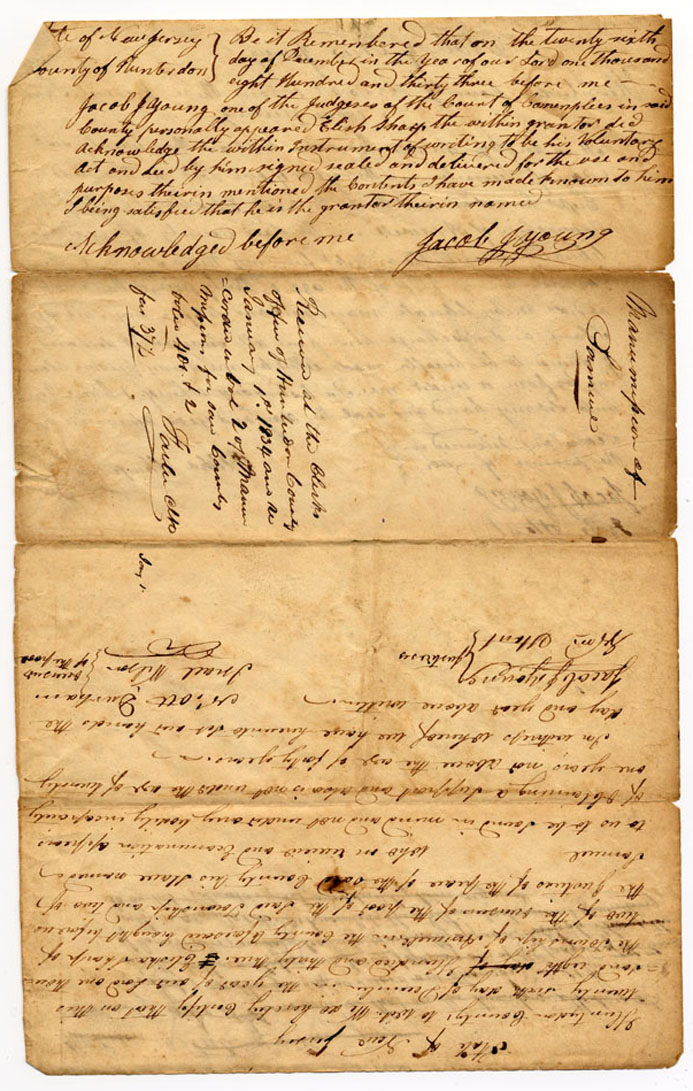 te of New Jersey
County of Hunterdon
Be it Remembered that on the twenty sixth
day of December in the Year of our Lord one thousand
eight Hundred and thirty three before me
Jacob J Young one of the Judgeses of the Court of in said
County personally appeared Elish Sharp the within grantor did
acknowledge the within Instrument of wording to be his Voluntary
Act and Deed by him signed sealed and delivered for the use and
purposes theirin mentioned the Contents I have made known to him
I being satisfied that he is the grantor theirin named
Acknowledged before me Jacob J Young
Manumission of
Samuel
Received at the Clerks
office of Hunterdon County
January 1st 1834 and re
=corded in Vol 2 of Manu
missions for said County
folio 401 & 2
fees 37½
Jany 1.
State of New Jersey
Hunterdon County to wit. We do hereby Certify that on this
twenty sixth day of December in the year of our Lord one thou
=sand eight Hundred and thirty three Elisha Sharp of
the Township of in the County aforesaid brought before us
two of the overseers of the poor of the said Township and two of
the Justices of the peace of the said County his slave named
Samuel who on view and examination appears
to us to be sound in mind and not under any bodily incapacity
of obtaining a support and also is not under the age of twenty
one years, nor above the age of forty years.
In witness whereof we have hereunto set our hands the
day and year above written.
Jacob J Young
Justices
Israel Wilson
overseers
of the poor